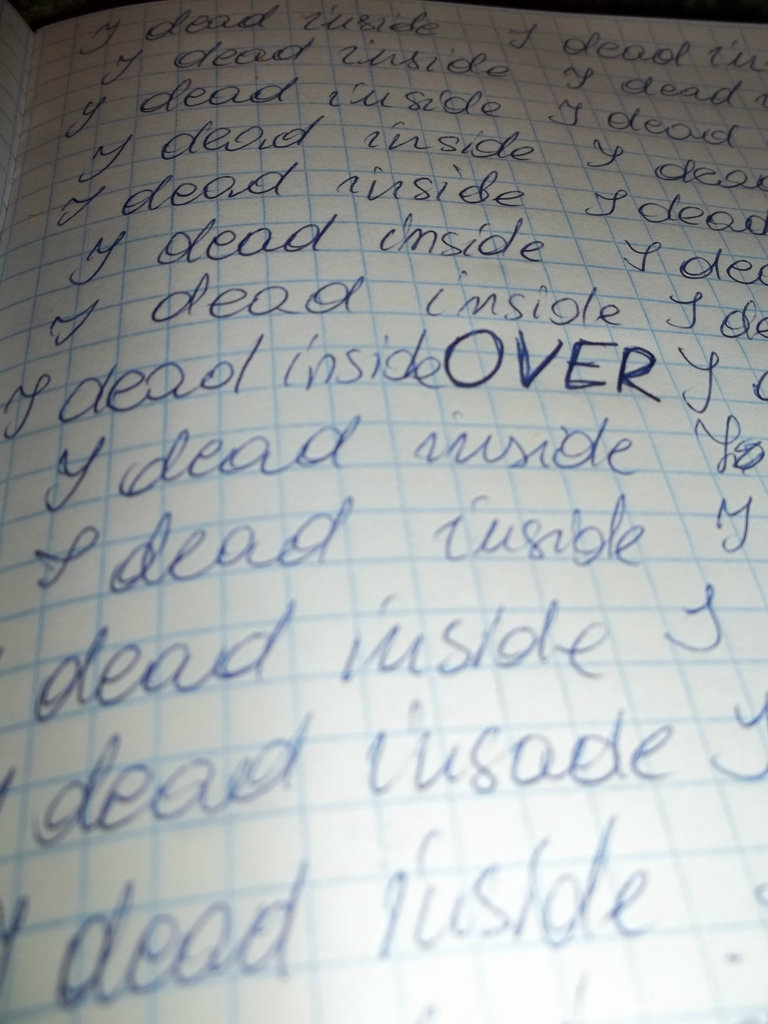 I dead inside I dead in
I dead inside I dead i
I dead inside I dead
I dead inside I dead
I dead inside I dead
I dead inside I dea
I dead inside I de
I dead inside OVER I d
I dead inside I
I dead inside I
dead inside I
I dead insade I
I dead inside